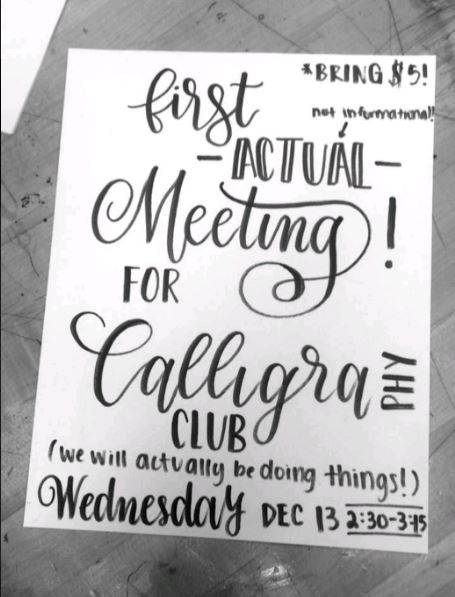 *BRING $5!
not informational!!
first
- ACTUAL -
Meeting!
FOR
Calligraphy
CLUB
(we will actually be doing things!)
Wednesday DEC 13 2:30-3:15